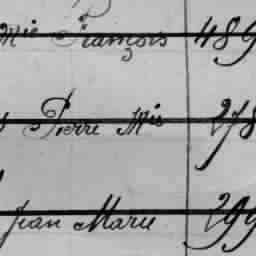 Mie François 489
Pierre Mie 278
Jean Marie 299